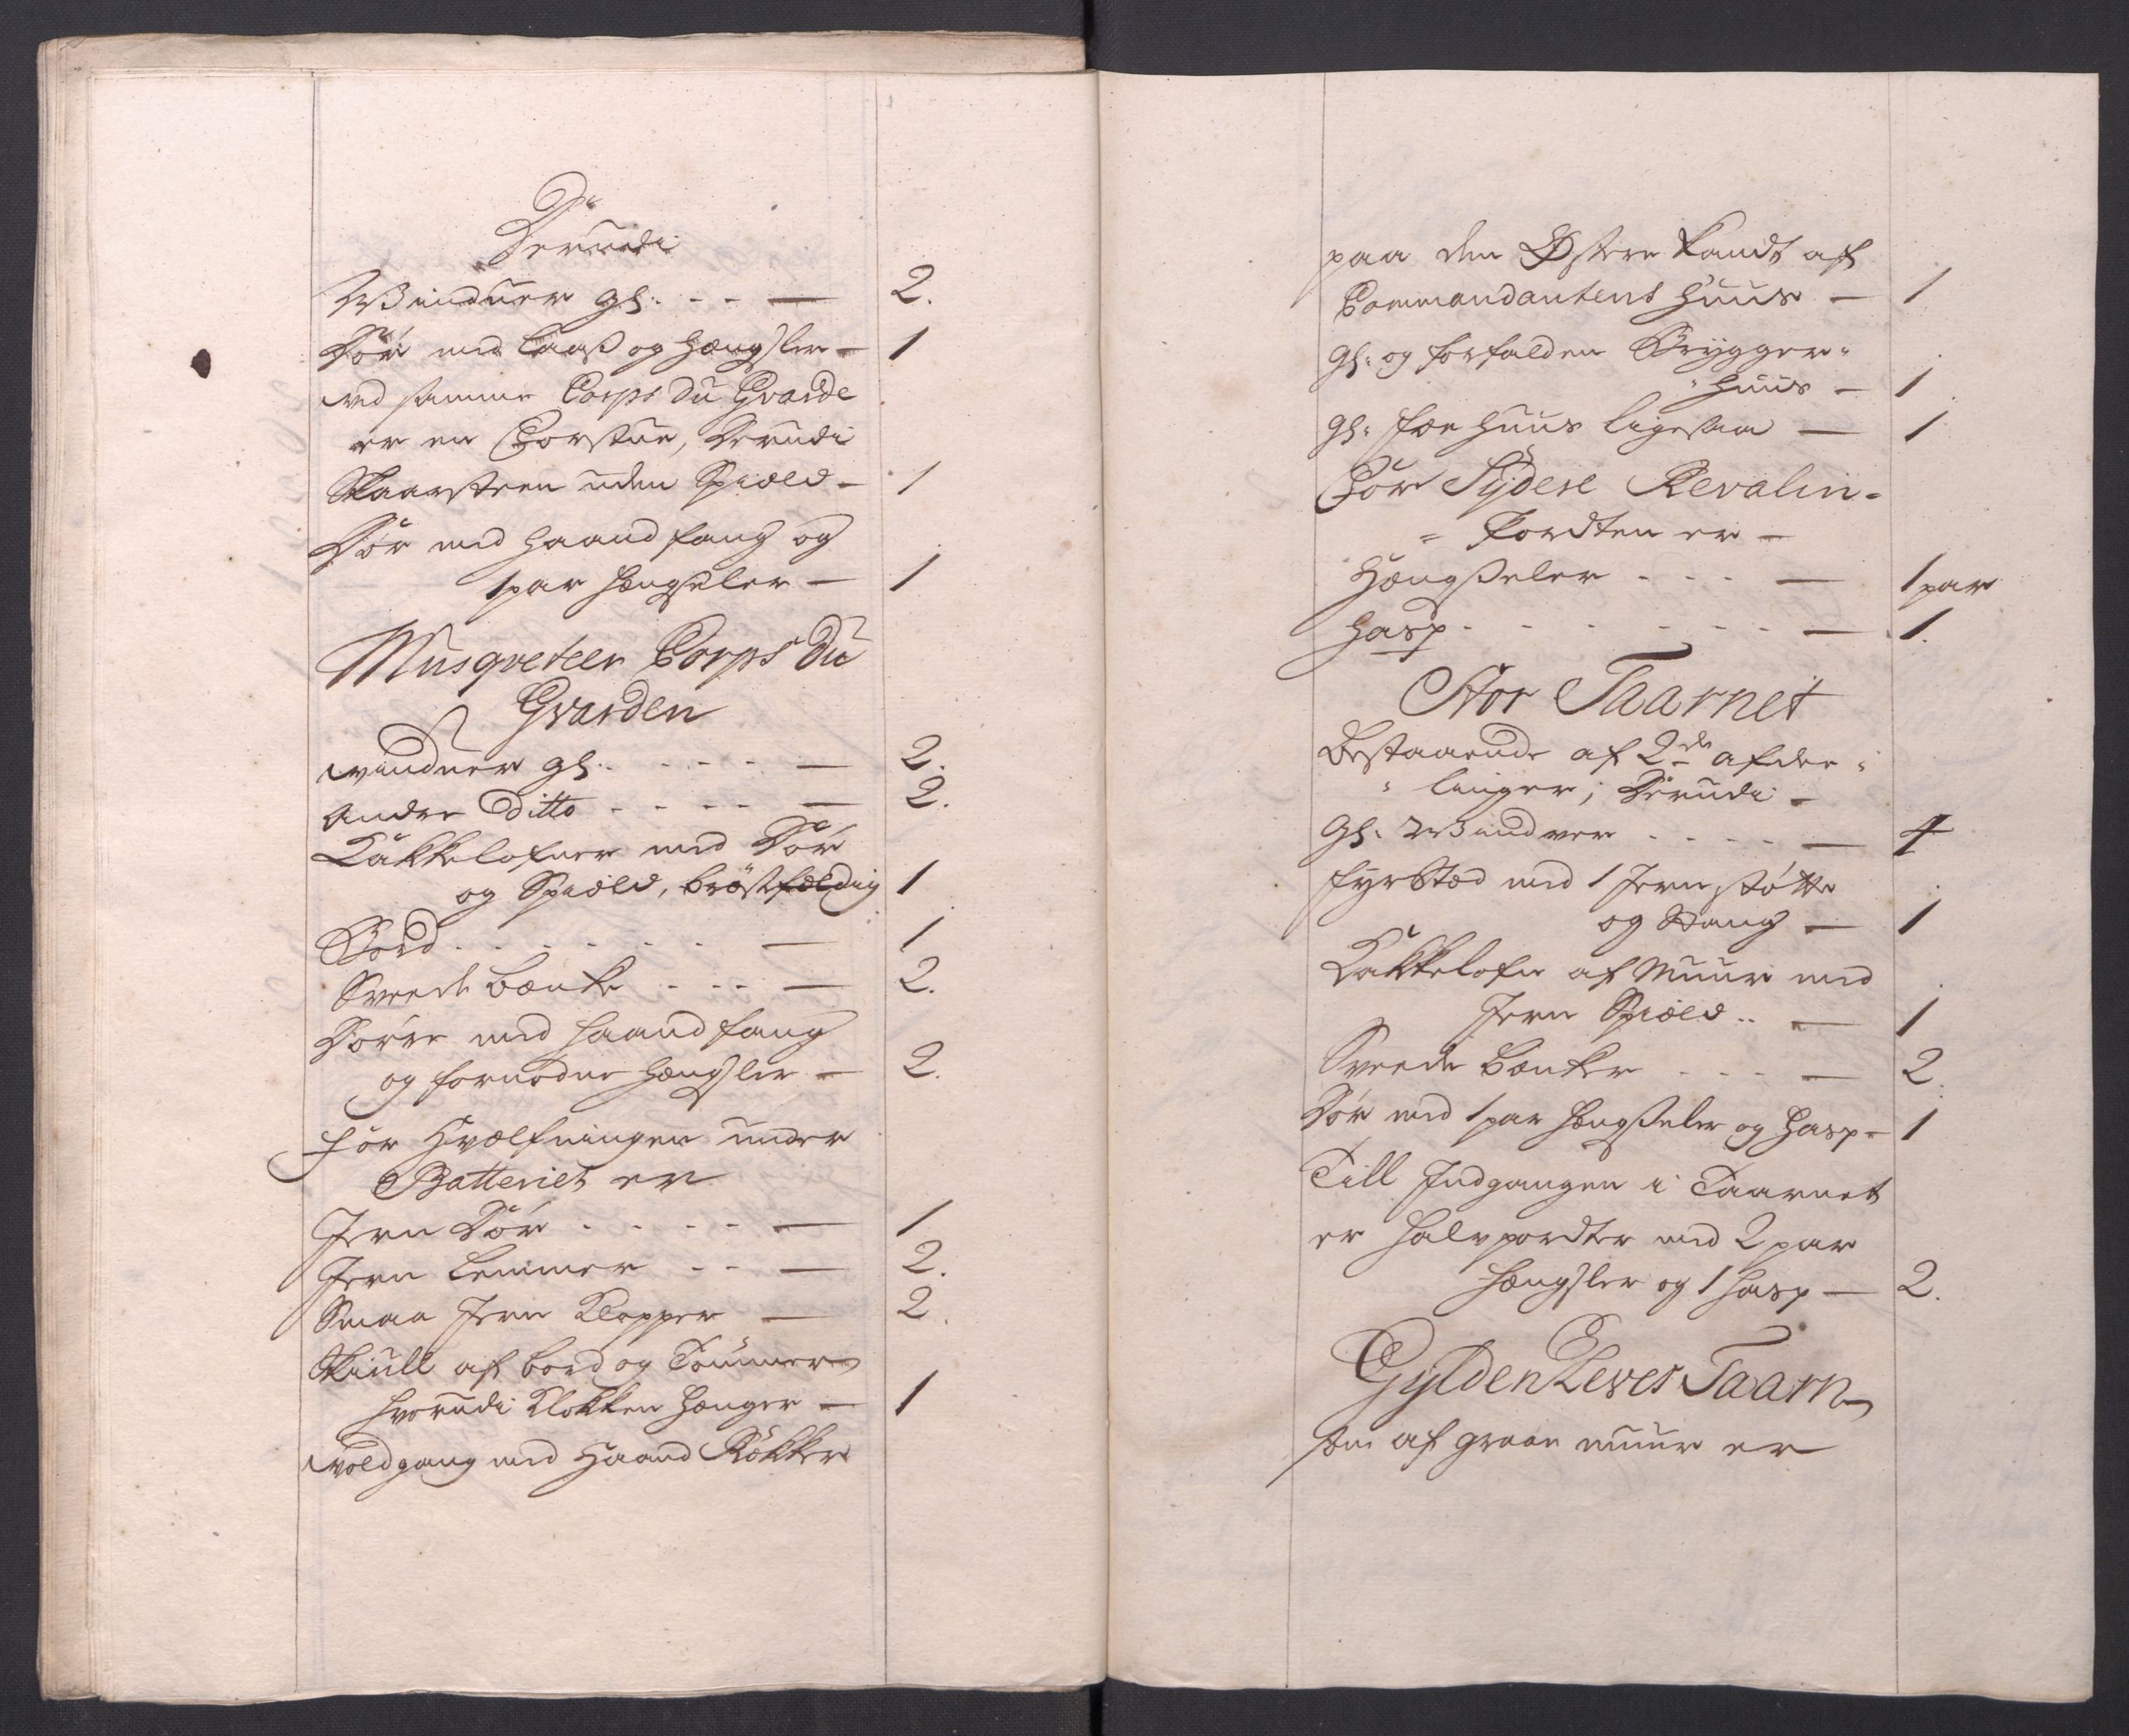 Derudi
Winduer gl: - - — 2.
Dör med Laaß og Hængsler — 1
ved samme Corps du Gvarde
er en Forstue, derudi
Skaarsteen uden Spiæld — 1
Dör med Haandfang og
1 par Hængseler — 1
Musqveteer Corps du
Gvarden
vinduer gl. - - - - — 2.
andre Ditto - - - - — 2.
Kakkelofner med Dör
og Spiæld, bröstfældig 1
Bord - - - - - - — 1
Sveede bænke - - - — 2.
Dörre med Haandfang
og fornödne Hængsler — 2.
For Hvælfningen under
Batteriet er
Jern Dör - - - - — 1
Jern Lemmer - - — 2.
Smaa Jern Klapper — 2.
Skiull af bord og Tömmer
hvorudi Klokken Hænger — 1
Voldgang med Haand Rökker
paa den Østre kandt af
Commandantens Huus — 1
gl: og forfalden Brÿgger-
huus — 1
gl: Fæe huus ligesaa — 1
For Sÿdere Revalin-
Pordten er —
Hængßeler - - - — 1 par
Hasp - - - - - - — 1.
Stor Taarnet
Bestaaende af 2de afdee-
linger; Derudi —
Gl: Windver - - - - — 4
Fyrstæd med 1 Jern stötte
og Stang — 1
Kakkelofn af Muur med
Jern Spiæld - — 1
Sveede bænker - - - — 2.
Dör med 1 par Hængßeler og Hasp — 1
Till Indgangen i Taarnet
er halvpordter med 2 par
Hængsler og 1 Hasp — 2.
Gyldenlewes Taarn
som af graae muur er